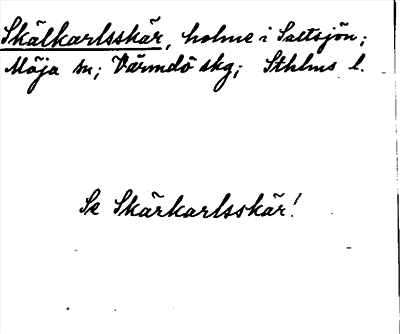 Skälkarlsskär, holme i Saltsjön;
Möja sn; Värmdö skg; Sthlms l.
Se Skärkarlsskär!